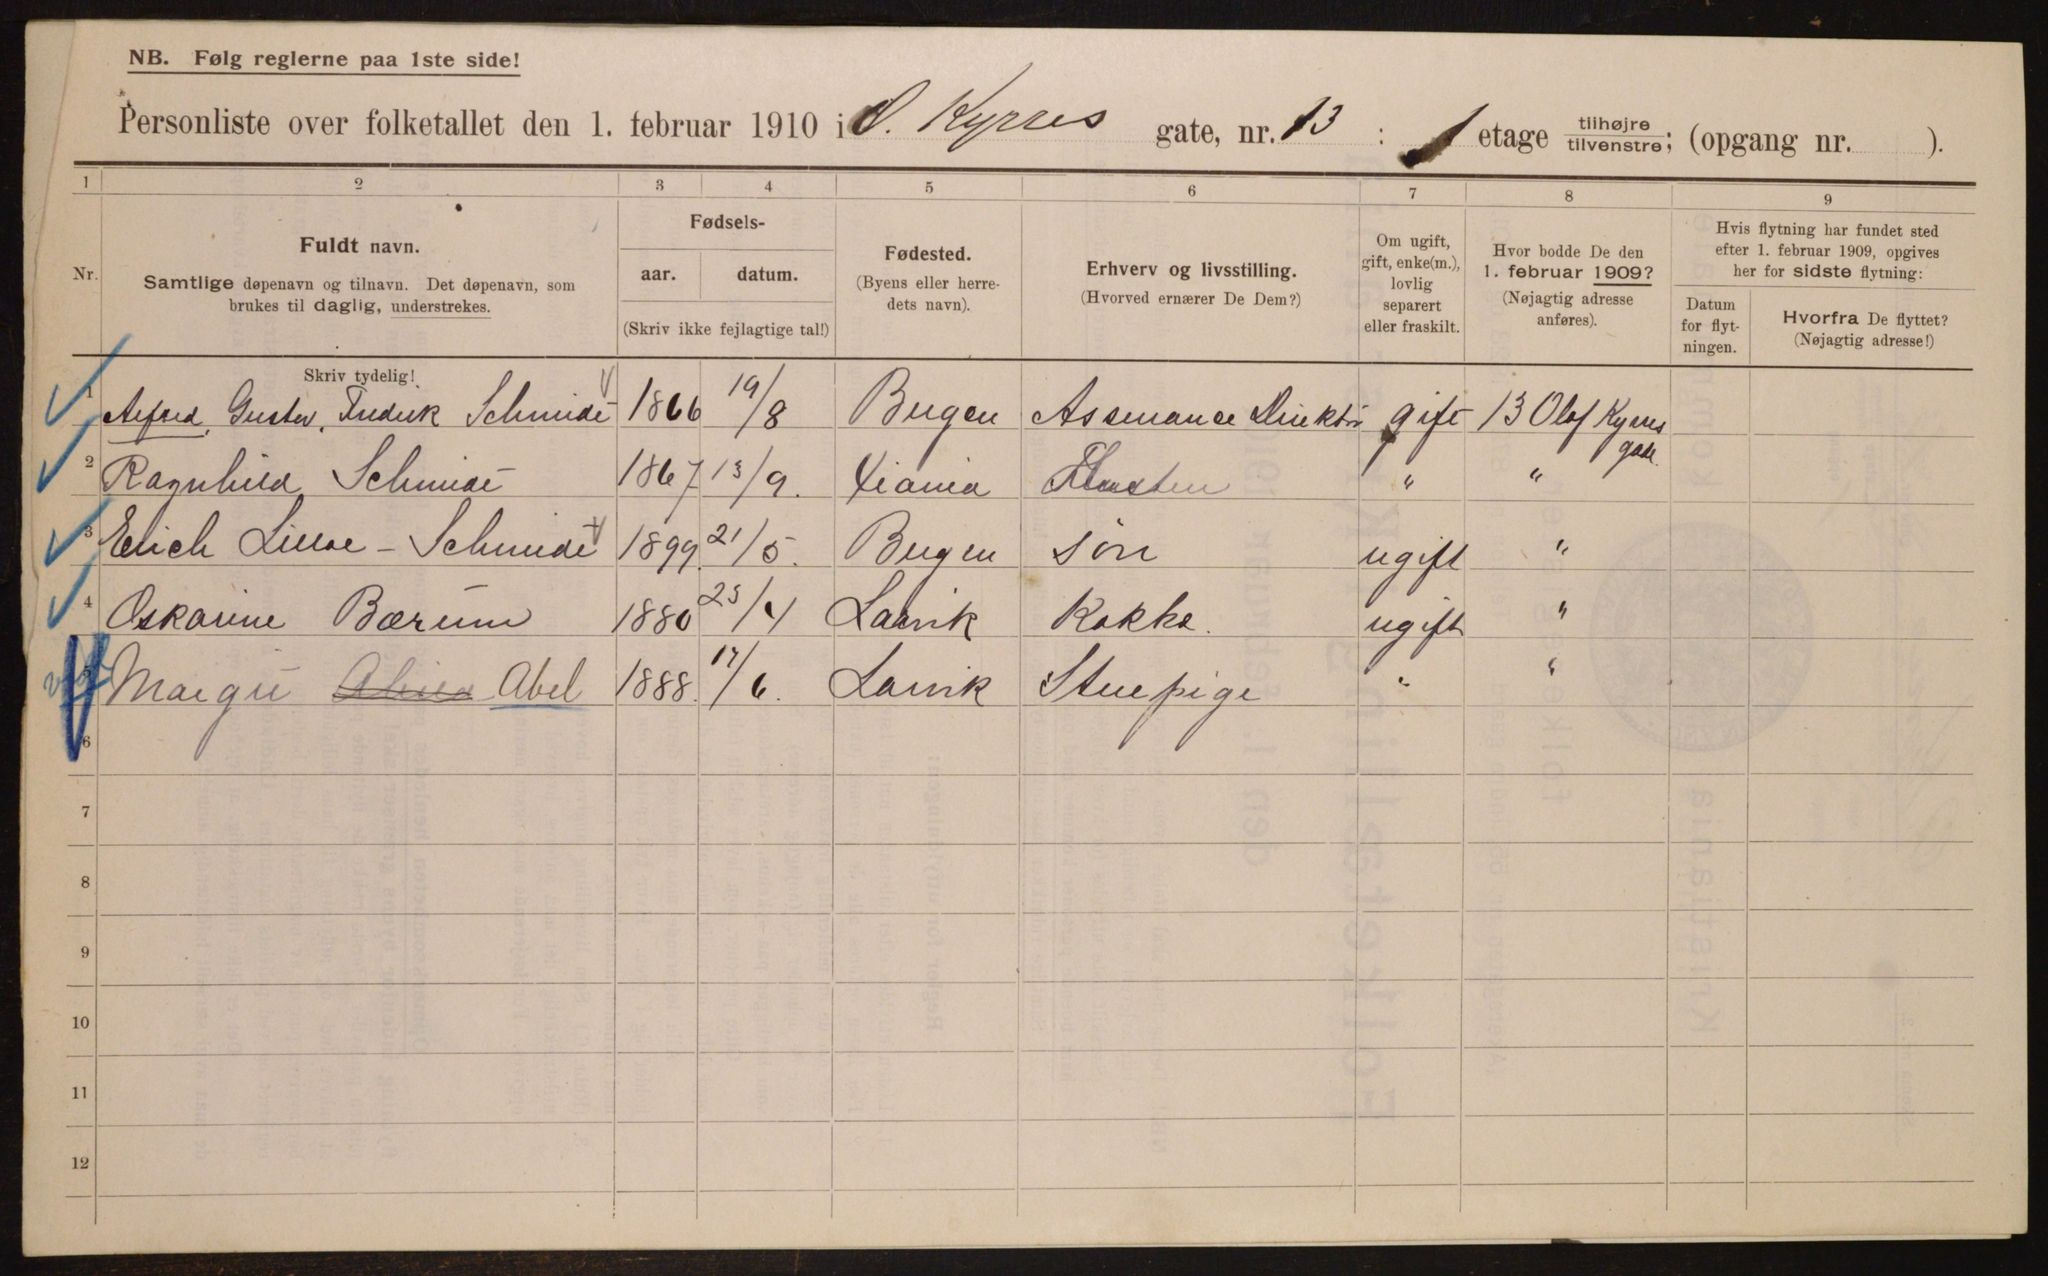 NB. Følg reglerne paa 1ste side!
Personliste over folketallet den 1. februar 1910 i O. Kyrres gate, nr. 13 : 1 etage tilhøjre/tilvenstre; (opgang nr. ).
1 2 3 4 5 6 7 8 9
Nr.
Fuldt navn.
Samtlige døpenavn og tilnavn. Det døpenavn, som
brukes til daglig, understrekes.
Skriv tydelig!
Fødsels-
aar. datum.
(Skriv ikke fejlagtige tal!)
Fødested.
(Byens eller herre-
dets navn).
Erhverv og livsstilling.
(Hvorved ernærer De Dem?)
Om ugift,
gift, enke(m.),
lovlig
separert
eller fraskilt.
Hvor bodde De den
1. februar 1909?
(Nøjagtig adresse
anføres).
Hvis flytning har fundet sted
efter 1. februar 1909, opgives
her for sidste flytning:
Datum
for flyt-
ningen.
Hvorfra De flyttet?
(Nøjagtig adresse!)
1 Alfred, Gustav, Fredrik Schmidt 1866 19/8 Bergen Assurance Direktør gift 13 Olaf Kyrres gade.
2 Ragnhild Schmidt 1867 13/9. Xiania " "
3 Erich Schmidt 1899. 21/5. Bergen søn ugift "
4 Oskarine Bærum 1880 23/4 Larvik Kokke. ugift "
5 Margit Abel 1888. 17/6. Larvik Stuepige " "
6
7
8
9
10
11
12